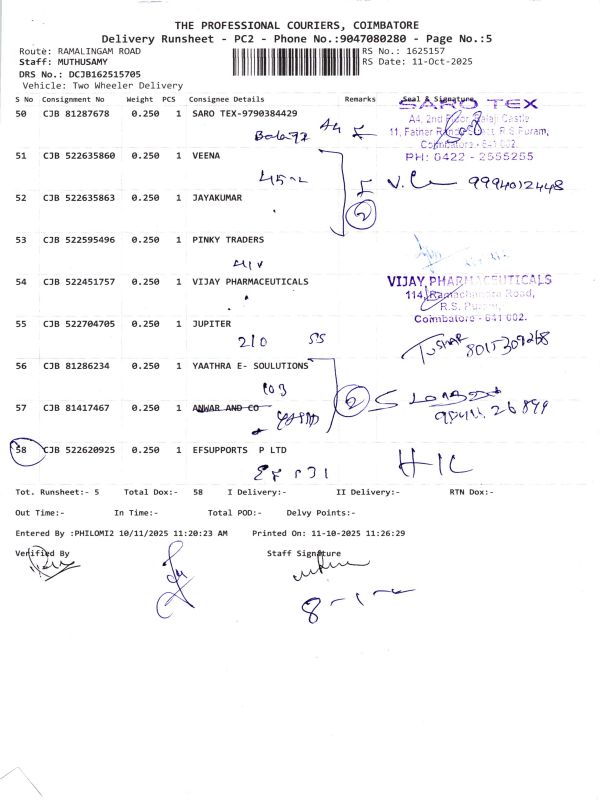 THE PROFESSIONAL COURIERS, COIMBATORE
Delivery Runsheet - PC2 - Phone No.:9047080280 - Page No.:5
Route: RAMALINGAM ROAD RS No.: 1625157
Staff: MUTHUSAMY RS Date: 11-Oct-2025
DRS No.: DCJB162515705
Vehicle: Two Wheeler Delivery
S No Consignment No Weight PCS Consignee Details Remarks Seal & Signature
50 CJB 81287678 0.250 1 SARO TEX-9790384429
SARO TEX
A4, 2nd Floor, Balaji Castle
11, Father Randy Street, R.S.Puram,
Coimbatore - 641 002.
PH: 0422 - 2555255
51 CJB 522635860 0.250 1 VEENA
9994012448
52 CJB 522635863 0.250 1 JAYAKUMAR
2
53 CJB 522595496 0.250 1 PINKY TRADERS
54 CJB 522451757 0.250 1 VIJAY PHARMACEUTICALS
VIJAY PHARMACEUTICALS
114, Ramachandra Road,
R.S. Puram,
Coimbatore - 641 002.
55 CJB 522704705 0.250 1 JUPITER
210 SS
56 CJB 81286234 0.250 1 YAATHRA E- SOULUTIONS
103
2
57 CJB 81417467 0.250 1 ANWAR AND CO
58 CJB 522620925 0.250 1 EFSUPPORTS P LTD
Tot. Runsheet:- 5 Total Dox:- 58 I Delivery:- II Delivery:- RTN Dox:-
Out Time:- In Time:- Total POD:- Delvy Points:-
Entered By :PHILOMI2 10/11/2025 11:20:23 AM Printed On: 11-10-2025 11:26:29
Verified By Staff Signature